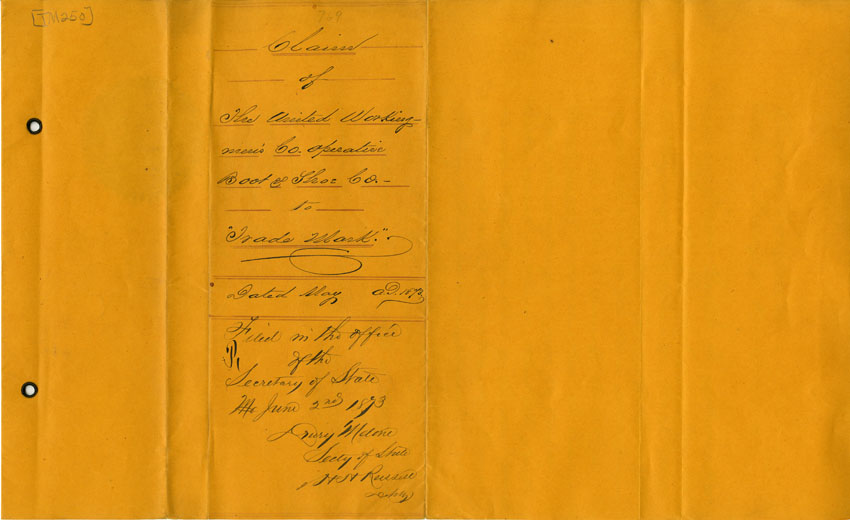 [TM250]
769
Claim
of
The United Working-
men's Co. operative
Boot & Shoe Co.-
to
"Trade Mark."
Dated May A.D. 1873
Filed in the office
of the
Secretary of State
June 2nd 1873
Drury Melone
Secty of State
Deputy